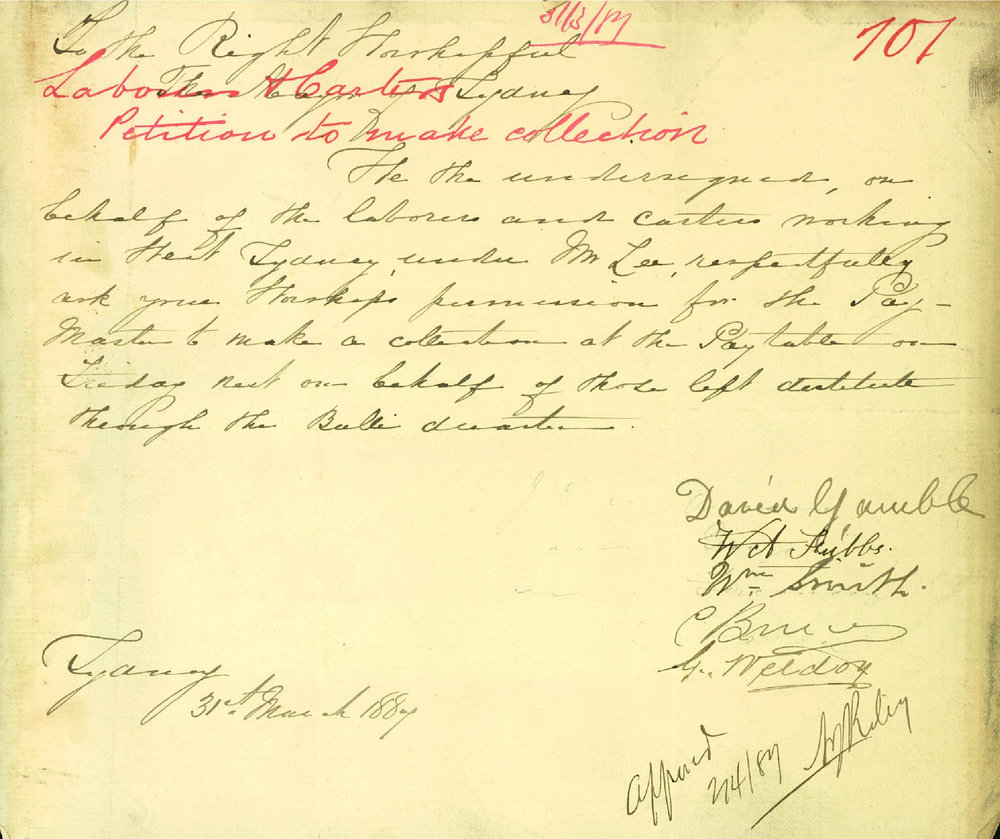 31/3/87
701
To the Right Worshipful
The Mayor of Sydney
Laborers & Carters
Petition to make collection
We the undersigned, on
behalf of the laborers and carters working
in West Sydney, under Mr Lee, respectfully
ask your Worships permission for the Pay-
Master to make a collection at the Paytable on
Friday next on behalf of those left destitute
through the Bulli disaster.
David Gamble
Stubbs.
Wm Smith.
C Bruce
G. Weldon
Sydney
31st March 1887
Approved
2/4/87
Riley